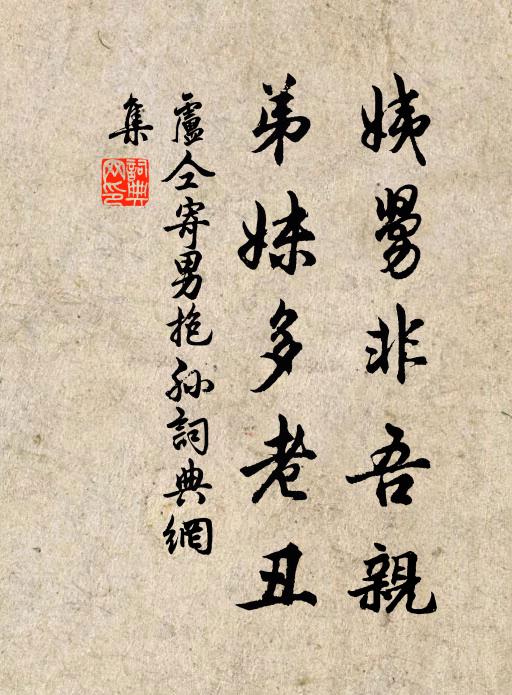 姨舅非吾親
弟妹多老丑
盧仝寄男抱孫詞典網
集
詞典網印